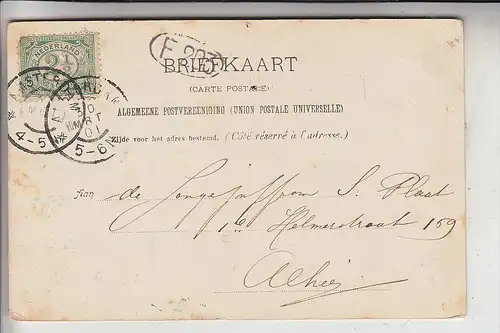 NEDERLAND
2½
F 203
BRIEFKAART
(CARTE POSTALE)
ALGEMEENE POSTVEREENIGING (UNION POSTALE UNIVERSELLE)
Zijde voor het adres bestemd. (Côté réservé à l'adresse.)
4-5 5-6
Aan de Jongejuffrouw S. Plaat
1e Helmerstraat 159
Alhier